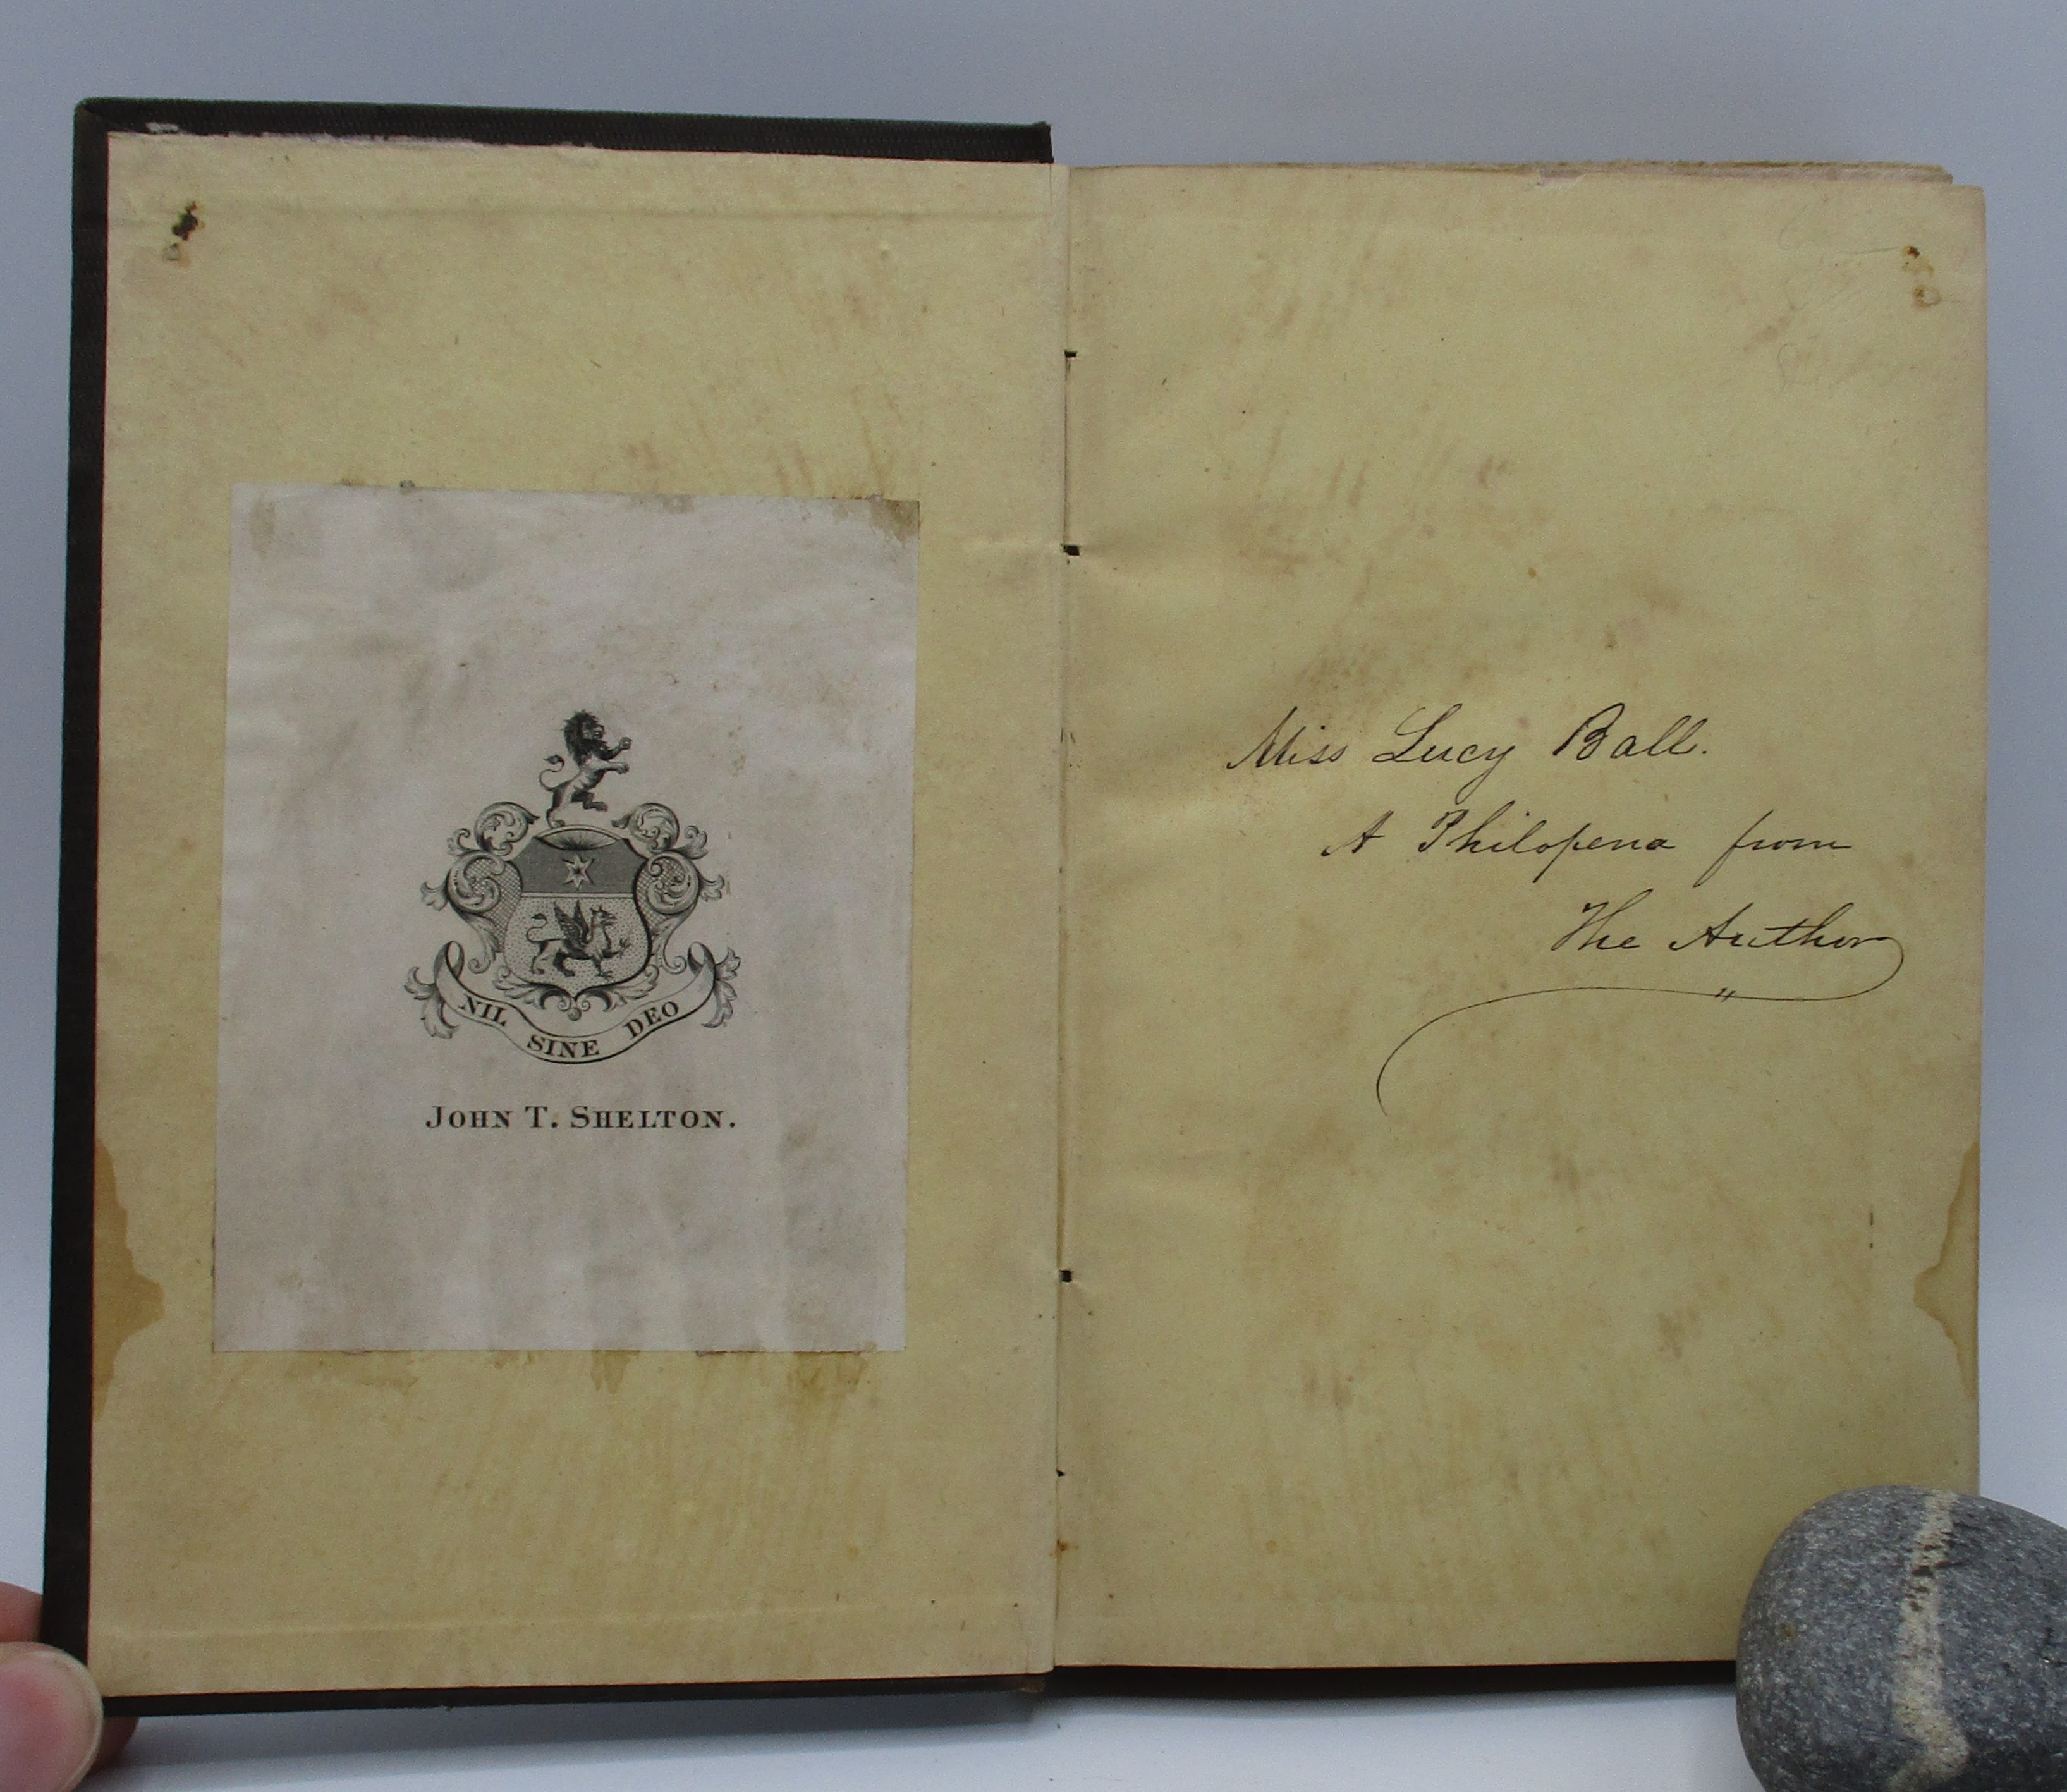 NIL SINE DEO
JOHN T. SHELTON.
Miss Lucy Ball.
A Philopena from
The Author